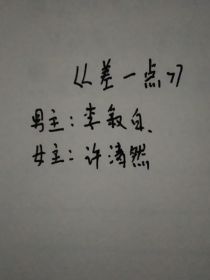 《差一点》
男主：李叙白、
女主：许清然